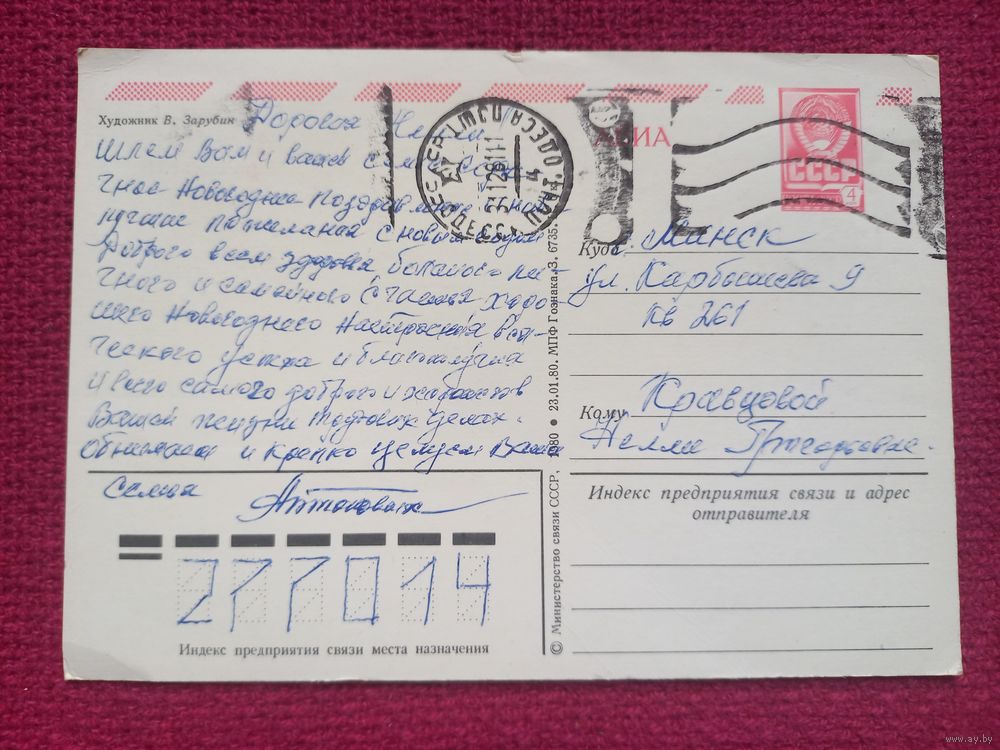 Художник В. Зарубин
Дорогая Нелли
шлем Вам и вашей семье
Новогодние поздравления
лучшие пожелания с новым годом
Доброго всем здоровья, большого лич-
ного и семейного счастья хоро-
шего Новогоднего настроения вся-
ческого успеха и благополучия
и всего самого доброго и хорошего в
Вашей жизни трудовых делах.
Обнимаем и крепко целуем Ваша
семья
АВИА
СССР
4
ОДЕССА
Куда г. Минск
ул. Карбышева 9
кв 261
Кому Кравцовой
Нелли Григорьевне.
Индекс предприятия связи и адрес
отправителя
277014
Индекс предприятия связи места назначения
© Министерство связи СССР, 1980 • 23.01.80. МПФ Гознака. З. 6735.
www.ay.by